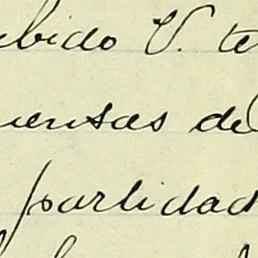 bido V. te
uensas de
partidad